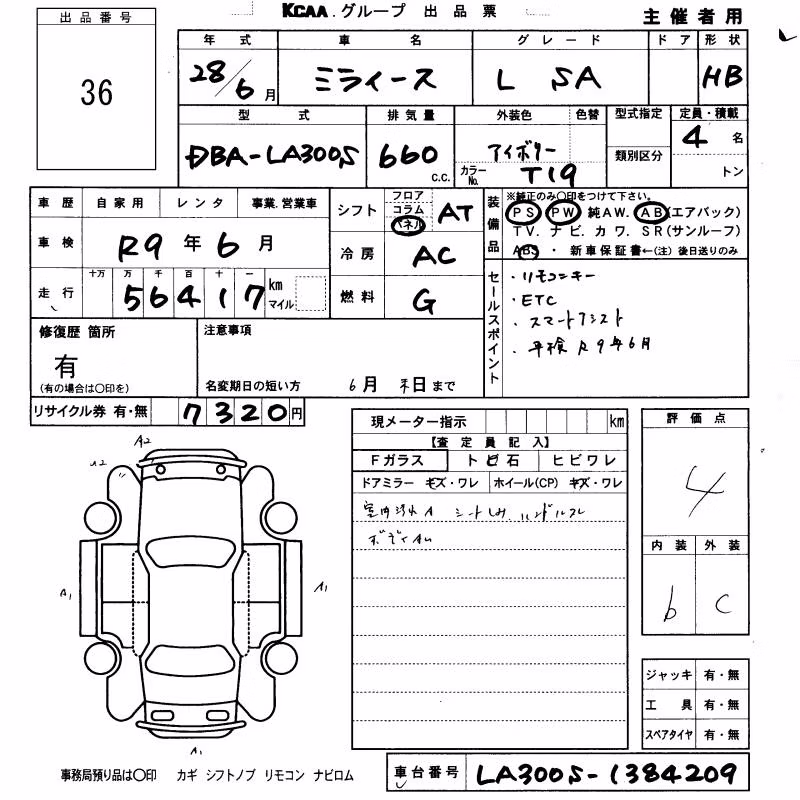 KCAA.グループ 出品票
主催者用
出品番号
36
年式 車名 グレード ドア 形状
28/6月 ミライース L SA HB
型式 排気量 外装色 色替 型式指定 定員・積載
DBA-LA300S 660 C.C. アイボリー 4 名
カラーNo. T19 類別区分 トン
車歴 自家用 レンタ 事業.営業車
車検 R9年6月
走行 十万 万 千 百 十 一 km マイル
56417
シフト フロア コラム パネル AT
冷房 AC
燃料 G
装備品 ※純正のみ〇印をつけて下さい。
PS PW 純AW. AB(エアバック)
TV. ナビ. カワ. SR(サンルーフ)
ABS ・ 新車保証書←(注) 後日送りのみ
セールスポイント
・リモコンキー
・ETC
・スマートアシスト
・車検R9年6月
修復歴 箇所
有
(有の場合は〇印を)
注意事項
名変期日の短い方 6月 末日まで
リサイクル券 有・無 7320円
現メーター指示 km
【査定員記入】
Fガラス トビ石 ヒビワレ
ドアミラー キズ・ワレ ホイール(CP) キズ・ワレ
室内汚れA シートしみ ハンドルスレ
評価点
4
内装 外装
b C
A2
A2
A1
A1
A1
ジャッキ 有・無
工具 有・無
スペアタイヤ 有・無
事務局預り品は〇印 カギ シフトノブ リモコン ナビロム
車台番号 LA300S-1384209